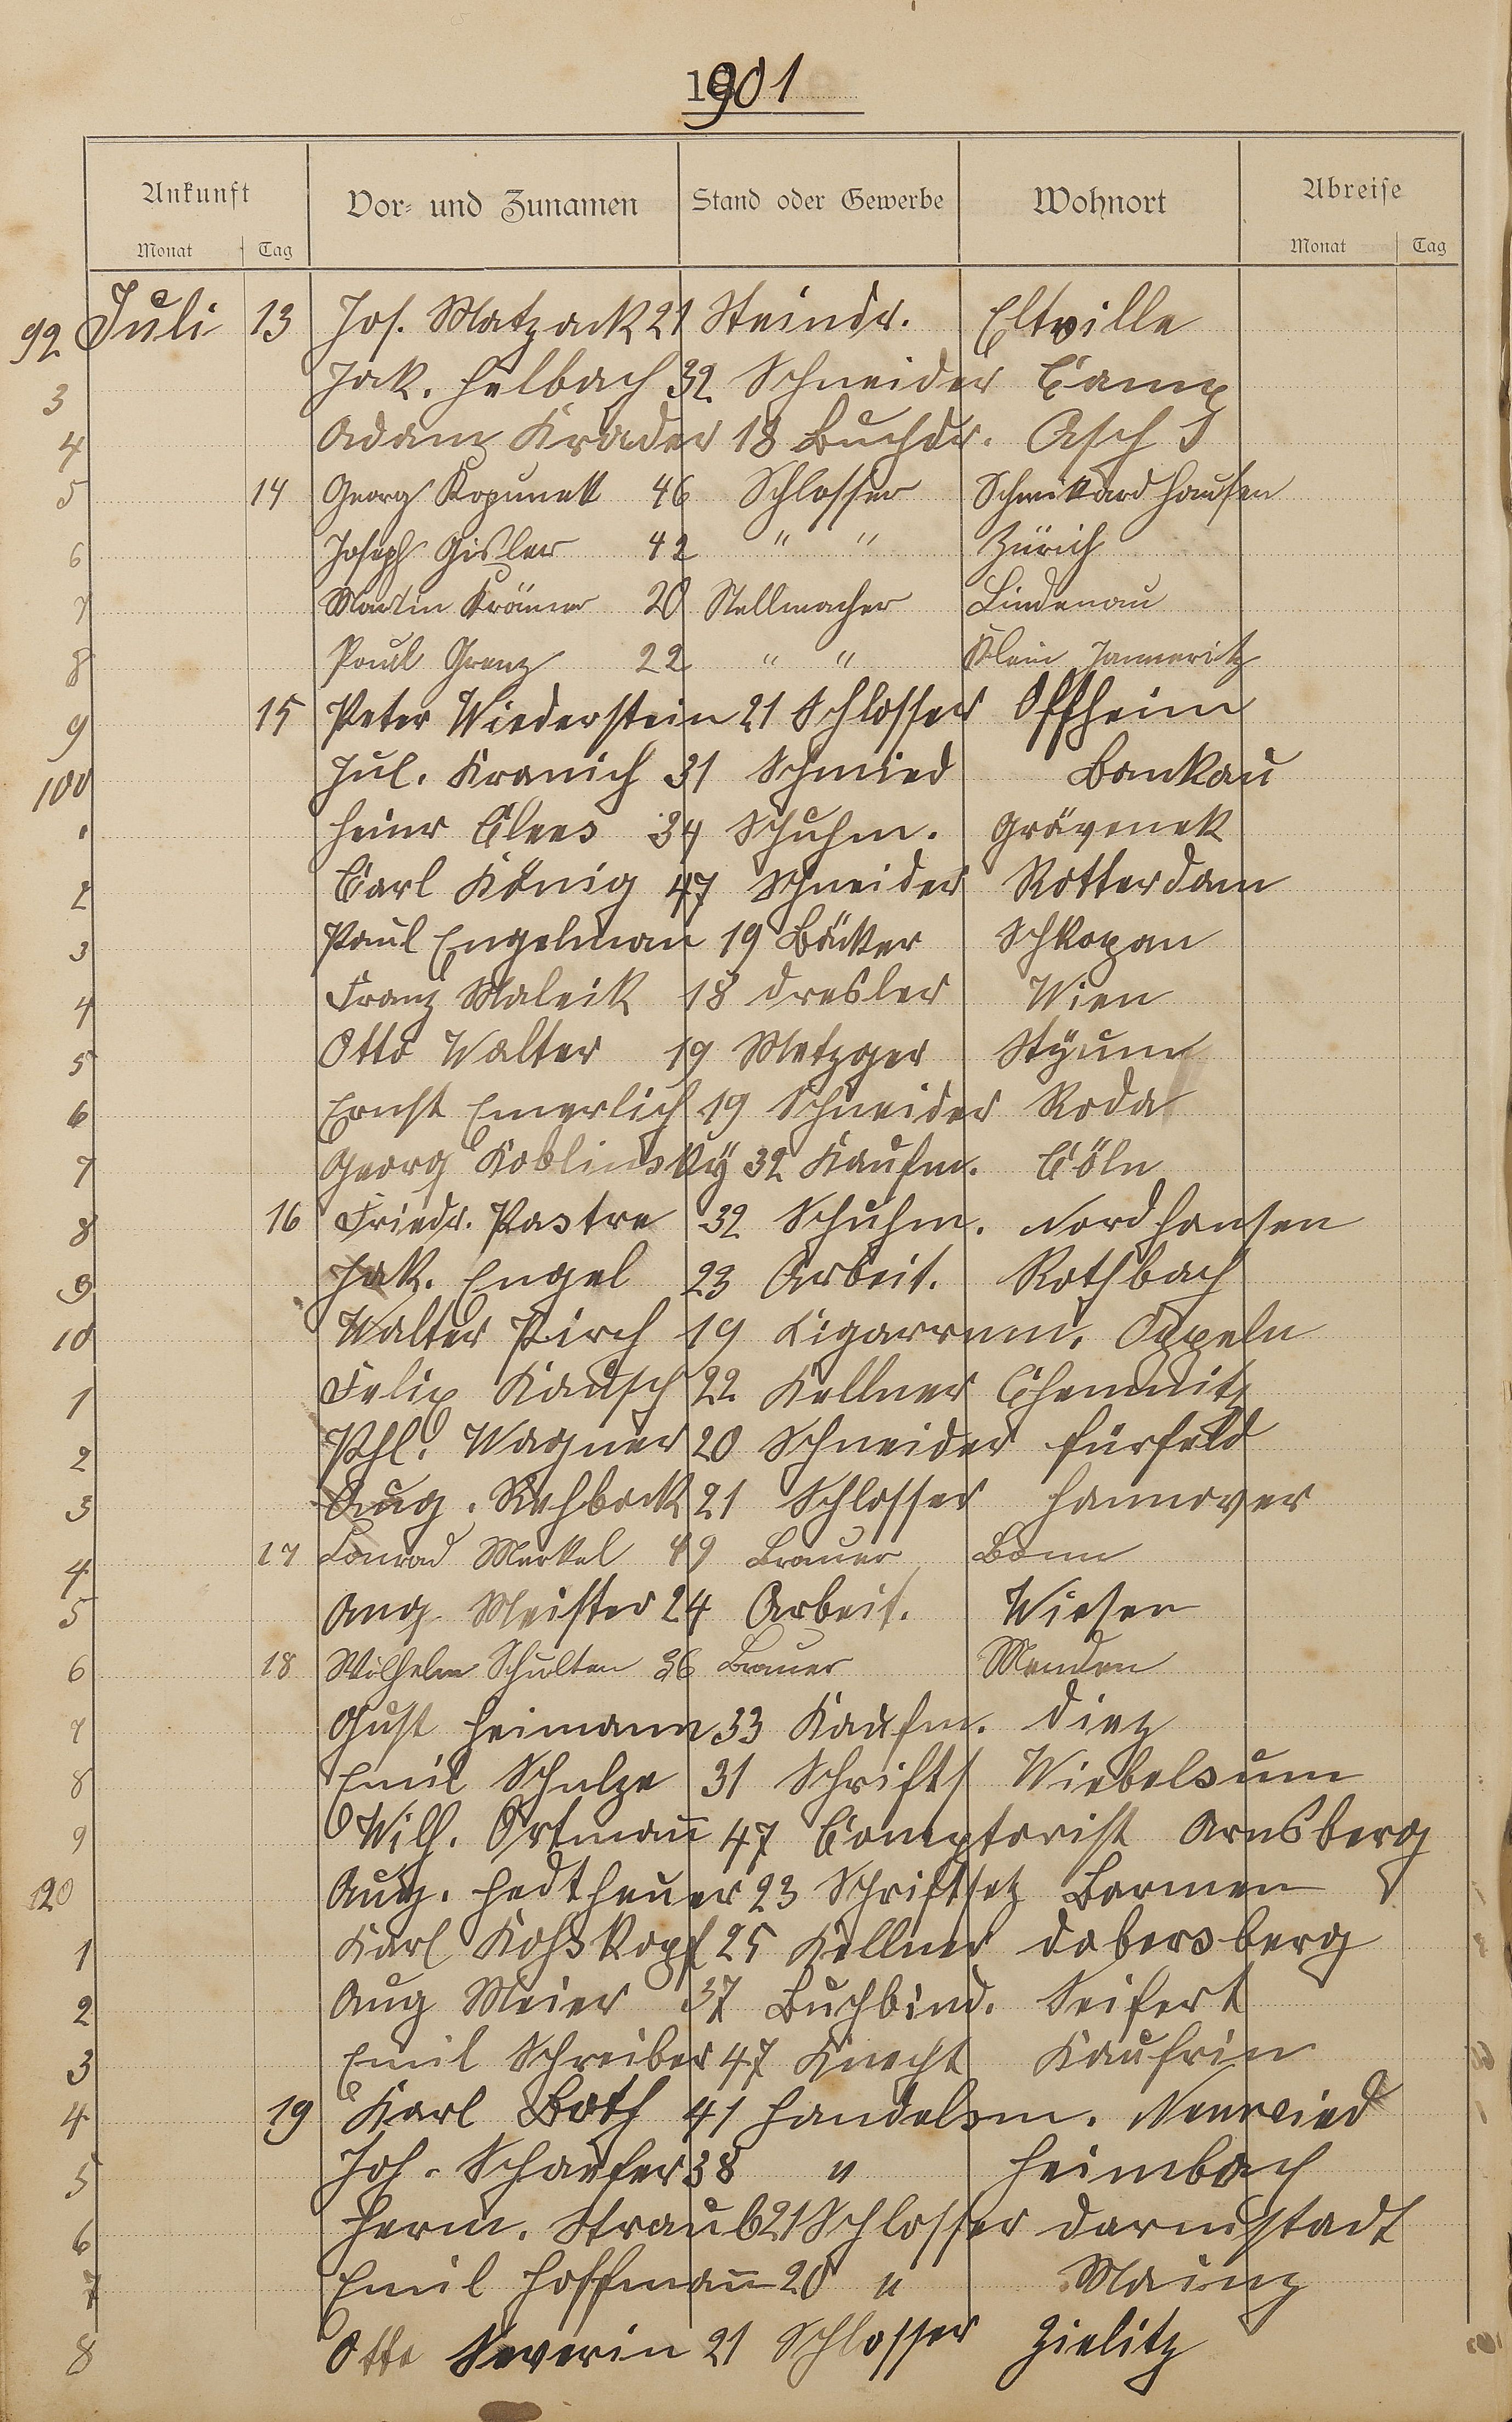 1901
Ankunft Vor- und Zunamen Stand oder Gewerbe Wohnort Abreise
Monat Tag Monat Tag
92 Juli 13 Jos. Matzack 21 Steindr. Eltville
3 Jak. Helbach 32 Schneider Camp
4 Adam Krader 18 Buchdr. Asch
5 14 Georg Kopunek 46 Schlosser Schwikardhausen
6 Joseph Gisler 42 " " Zürich
7 Martin Krämer 20 Stellmacher Lindenau
8 Paul Grenz 22 " " Klein Janneritz
9 15 Peter Wiederstein 21 Schlosser Offheim
100 Jul. Kranich 31 Schmied Bankau
1 Heinr Clees 34 Schuhm. Grävenek
2 Carl König 47 Schneider Rotterdam
3 Paul Engelman 19 Bäcker Schkopau
4 Franz Maleik 18 Dresler Wien
5 Otto Walter 19 Metzger Styrum
6 Ernst Emerlich 19 Schneider Roda
7 Georg Koblinsky 32 Kaufm. Cöln
8 16 Friedr. Pastre 32 Schuhm. Nordhausen
9 Jak. Engel 23 Arbeit. Rothbach
10 Walter Pirch 19 Cigarrnm. Oppeln
1 Felix Kausch 22 Kellner Chemnitz
2 Phl. Wagner 20 Schneider Fürfeld
3 Aug. Rehbock 21 Schlosser Hannover
4 17 Conrad Merkel 49 Brauer Bonn
5 Aug. Meister 24 Arbeit. Wiesen
6 18 Wilhelm Schulten 36 Brauer Menden
7 Gust Heimann 33 Kaufm. Diez
8 Emil Schulze 31 Schrifts Wiebelsum
9 Wilh. Ortmann 47 Comptorist Arnsberg
120 Aug. Hedtheuer 23 Schriftsetz Barmen
1 Karl Kohskopf 25 Kellner Dobersberg
2 Aug Meier 37 Buchbind. Seifert
3 Emil Schreiber 47 Knecht Kaufrin
4 19 Karl Both 41 Handelsm. Neuwied
5 Joh. Schaefer 38 " Heimbach
6 Herm. Straub 21 Schlosser Darmstadt
7 Emil Hoffmann 20 " Mainz
8 Otto Severin 21 Schlosser Zielitz